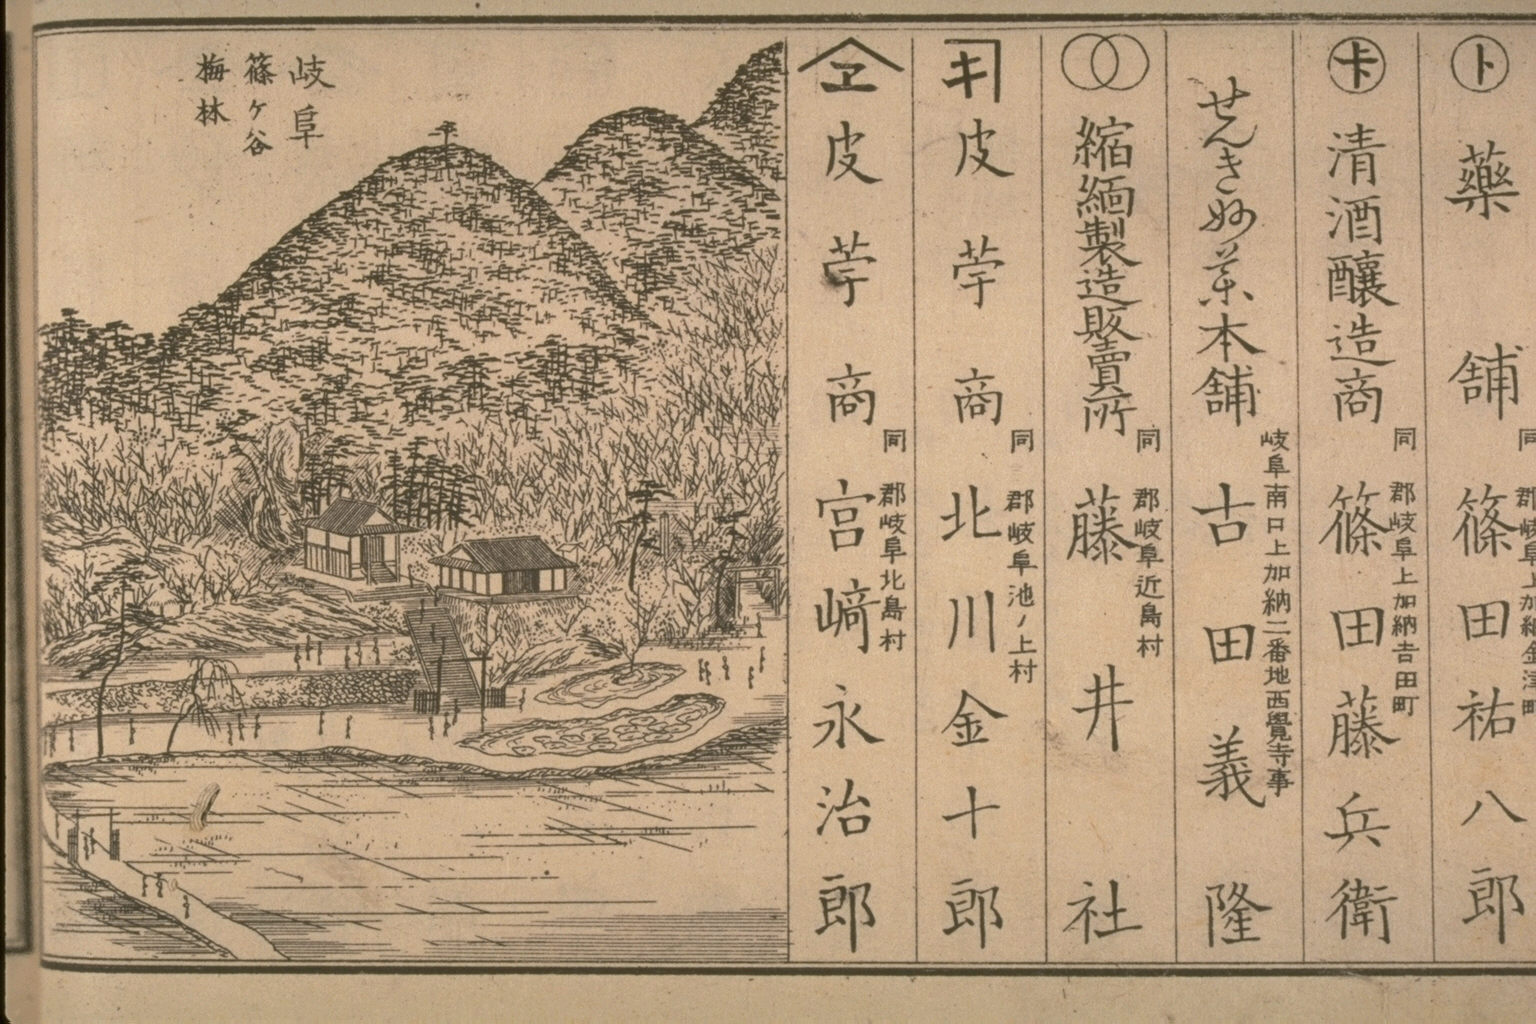 ト
藥舖
同郡岐阜上加納金津町
篠田祐八郎
卡
清酒醸造商
同郡岐阜上加納吉田町
篠田藤兵衛
せんき妙藥本舖
岐阜南口上加納二番地西覺寺事
古田義隆
縮緬製造販賣所
同郡岐阜近島村
藤井社
キ
皮苧商
同郡岐阜池ノ上村
北川金十郎
ヱ
皮苧商
同郡岐阜北島村
宮﨑永治郎
岐阜
篠ヶ谷
梅林